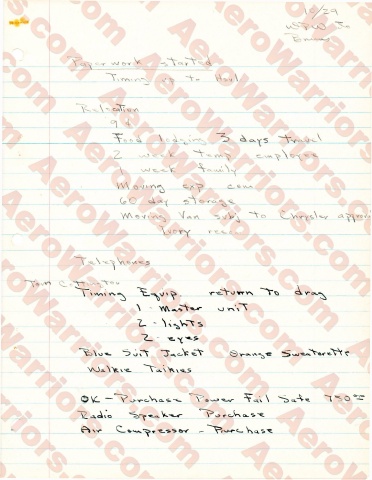 10/29
Paperwork started
Timing up to Hovl
Relocation
9 d
Food lodging 3 days travel
2 week temp employee
1 week family
Moving exp com.
60 day storage
Moving Van subj to Chrysler
Telephones
Timing Equip return to drag
1 - Master unit
2 - lights
2 - eyes
Blue Suit Jacket Orange Sweaterette
Walkie Talkies
OK - Purchase Power Fail Safe 750
Radio Speaker Purchase
Air Compressor - Purchase
AeroWarriors.com